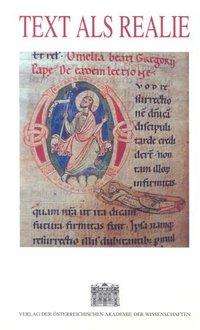 TEXT ALS REALIE
Et rel. Omelia beati Gregorij
Pape. De eadem lectione.
surrectio
discipuli
tarde credi
non
infirmitas
quam nr̄a ut ita dicam
futura firmitas fuit. Ipsa
resurrectio illis dubitantibus
VERLAG DER ÖSTERREICHISCHEN AKADEMIE DER WISSENSCHAFTEN